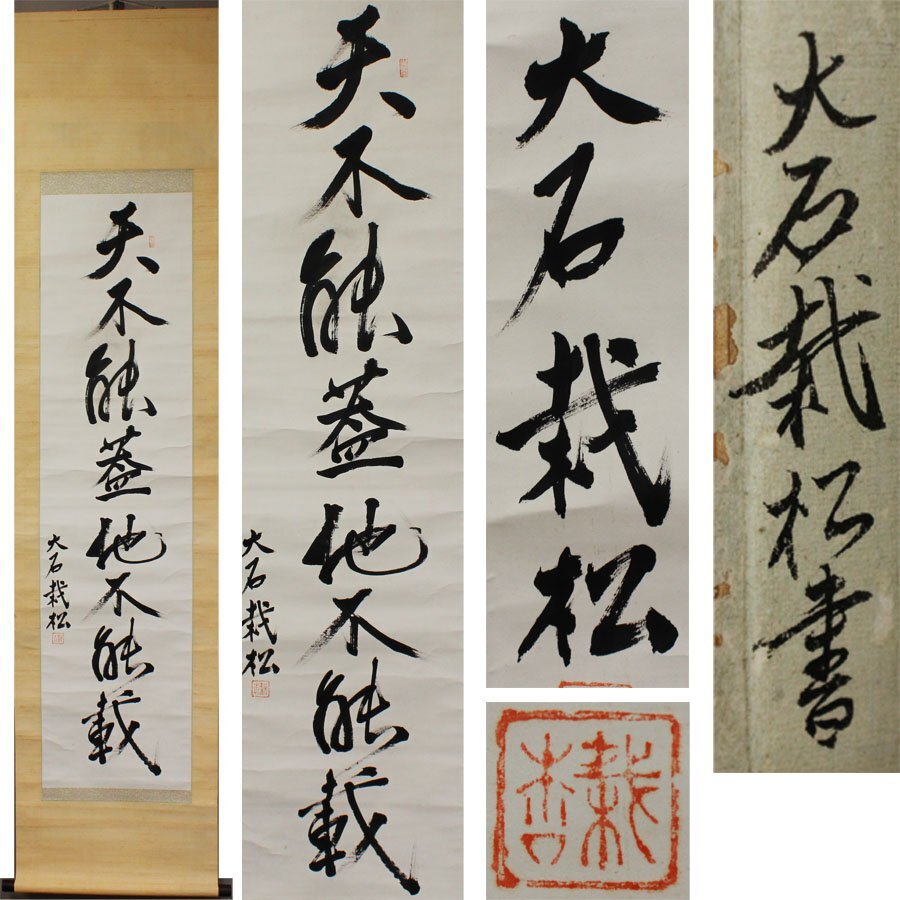 天不能蓋地不能載
大石栽松
天不能蓋地不能載
大石栽松
大石栽松
大石栽松書